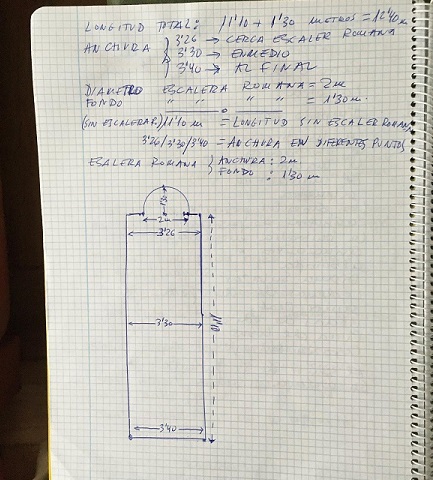 LONGITUD TOTAL: 11'10 + 1'30 METROS = 12'40 m
ANCHURA } 3'26 → CERCA ESCALER ROMANA
3'30 → ENMEDIO
3'40 → AL FINAL
DIAMETRO ESCALERA ROMANA = 2m
FONDO " " " " = 1'30 m.
(SIN ESCALERA) 11'10 m = LONGITUD SIN ESCALER ROMANA
3'26/3'30/3'40 = ANCHURA EN DIFERENTES PUNTOS
ESCALERA ROMANA } ANCHURA: 2m
FONDO : 1'30 m
1'30
2m
3'26
3'30
11'10
3'40